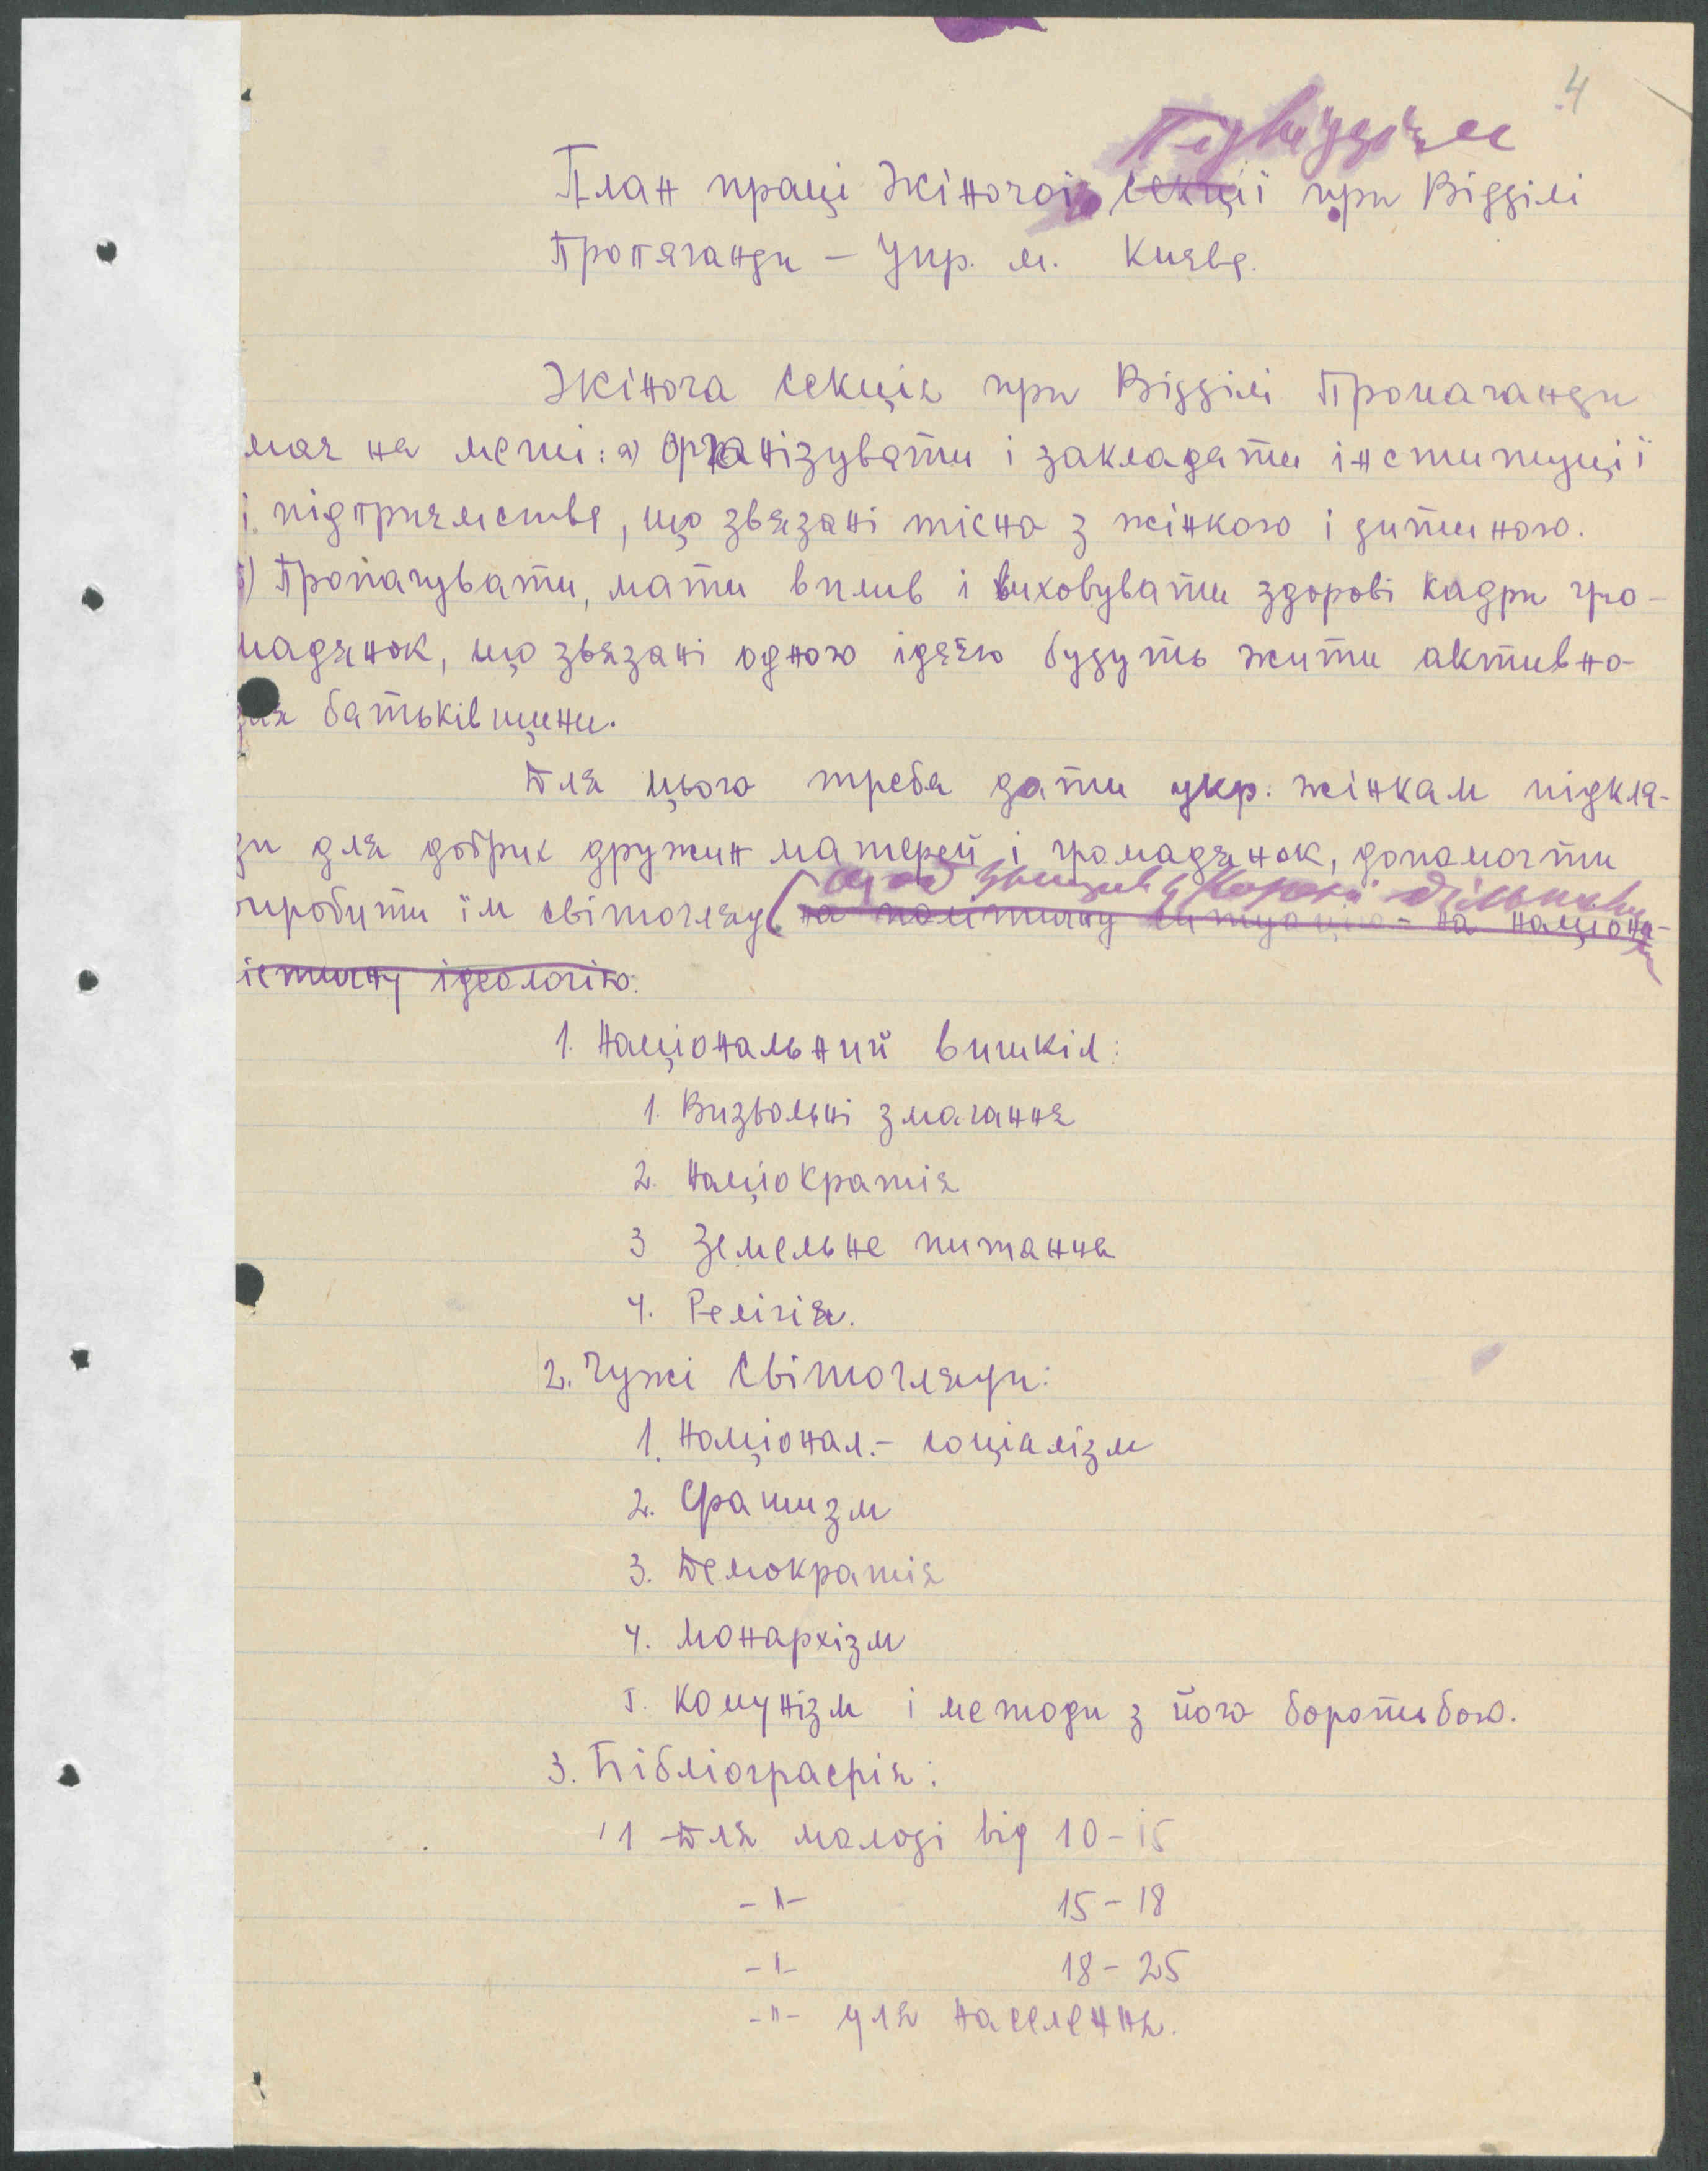 4
Підвідділ
План праці Жіночої секції при Відділі
Пропаганди — Упр. м. Києва.
Жіноча секція при Відділі Пропаганди
має на меті: а) Організувати і закладати інституції
і підприємства, що звязані тісно з жінкою і дитиною.
) Пропагувати, мати вплив і виховувати здорові кадри гро-
мадянок, що звязані одною ідеєю будуть жити активно
для батьківщини.
Для цього треба дати укр. жінкам підкла-
ди для добрих дружин матерей і громадянок, допомогти
виробити їм світогляд (на політичну ситуацію - на націона-
лістичну ідеологію.
1. Національний вишкіл:
1. Визвольні змагання
2. Націократія
3 Земельне питання
4. Релігія.
2. Чужі світогляди:
1. Націонал.- соціалізм
2. Фашизм
3. Демократія
4. Монархізм
5. Комунізм і методи з його боротьбою.
3. Бібліографія:
1 Для молоді від 10-15
-"- 15-18
-"- 18-25
-"- для населення.